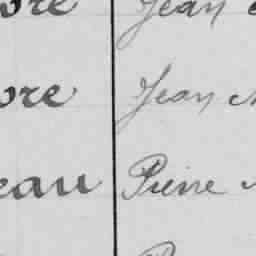 ore Jean
ore Jean
eau Pierre